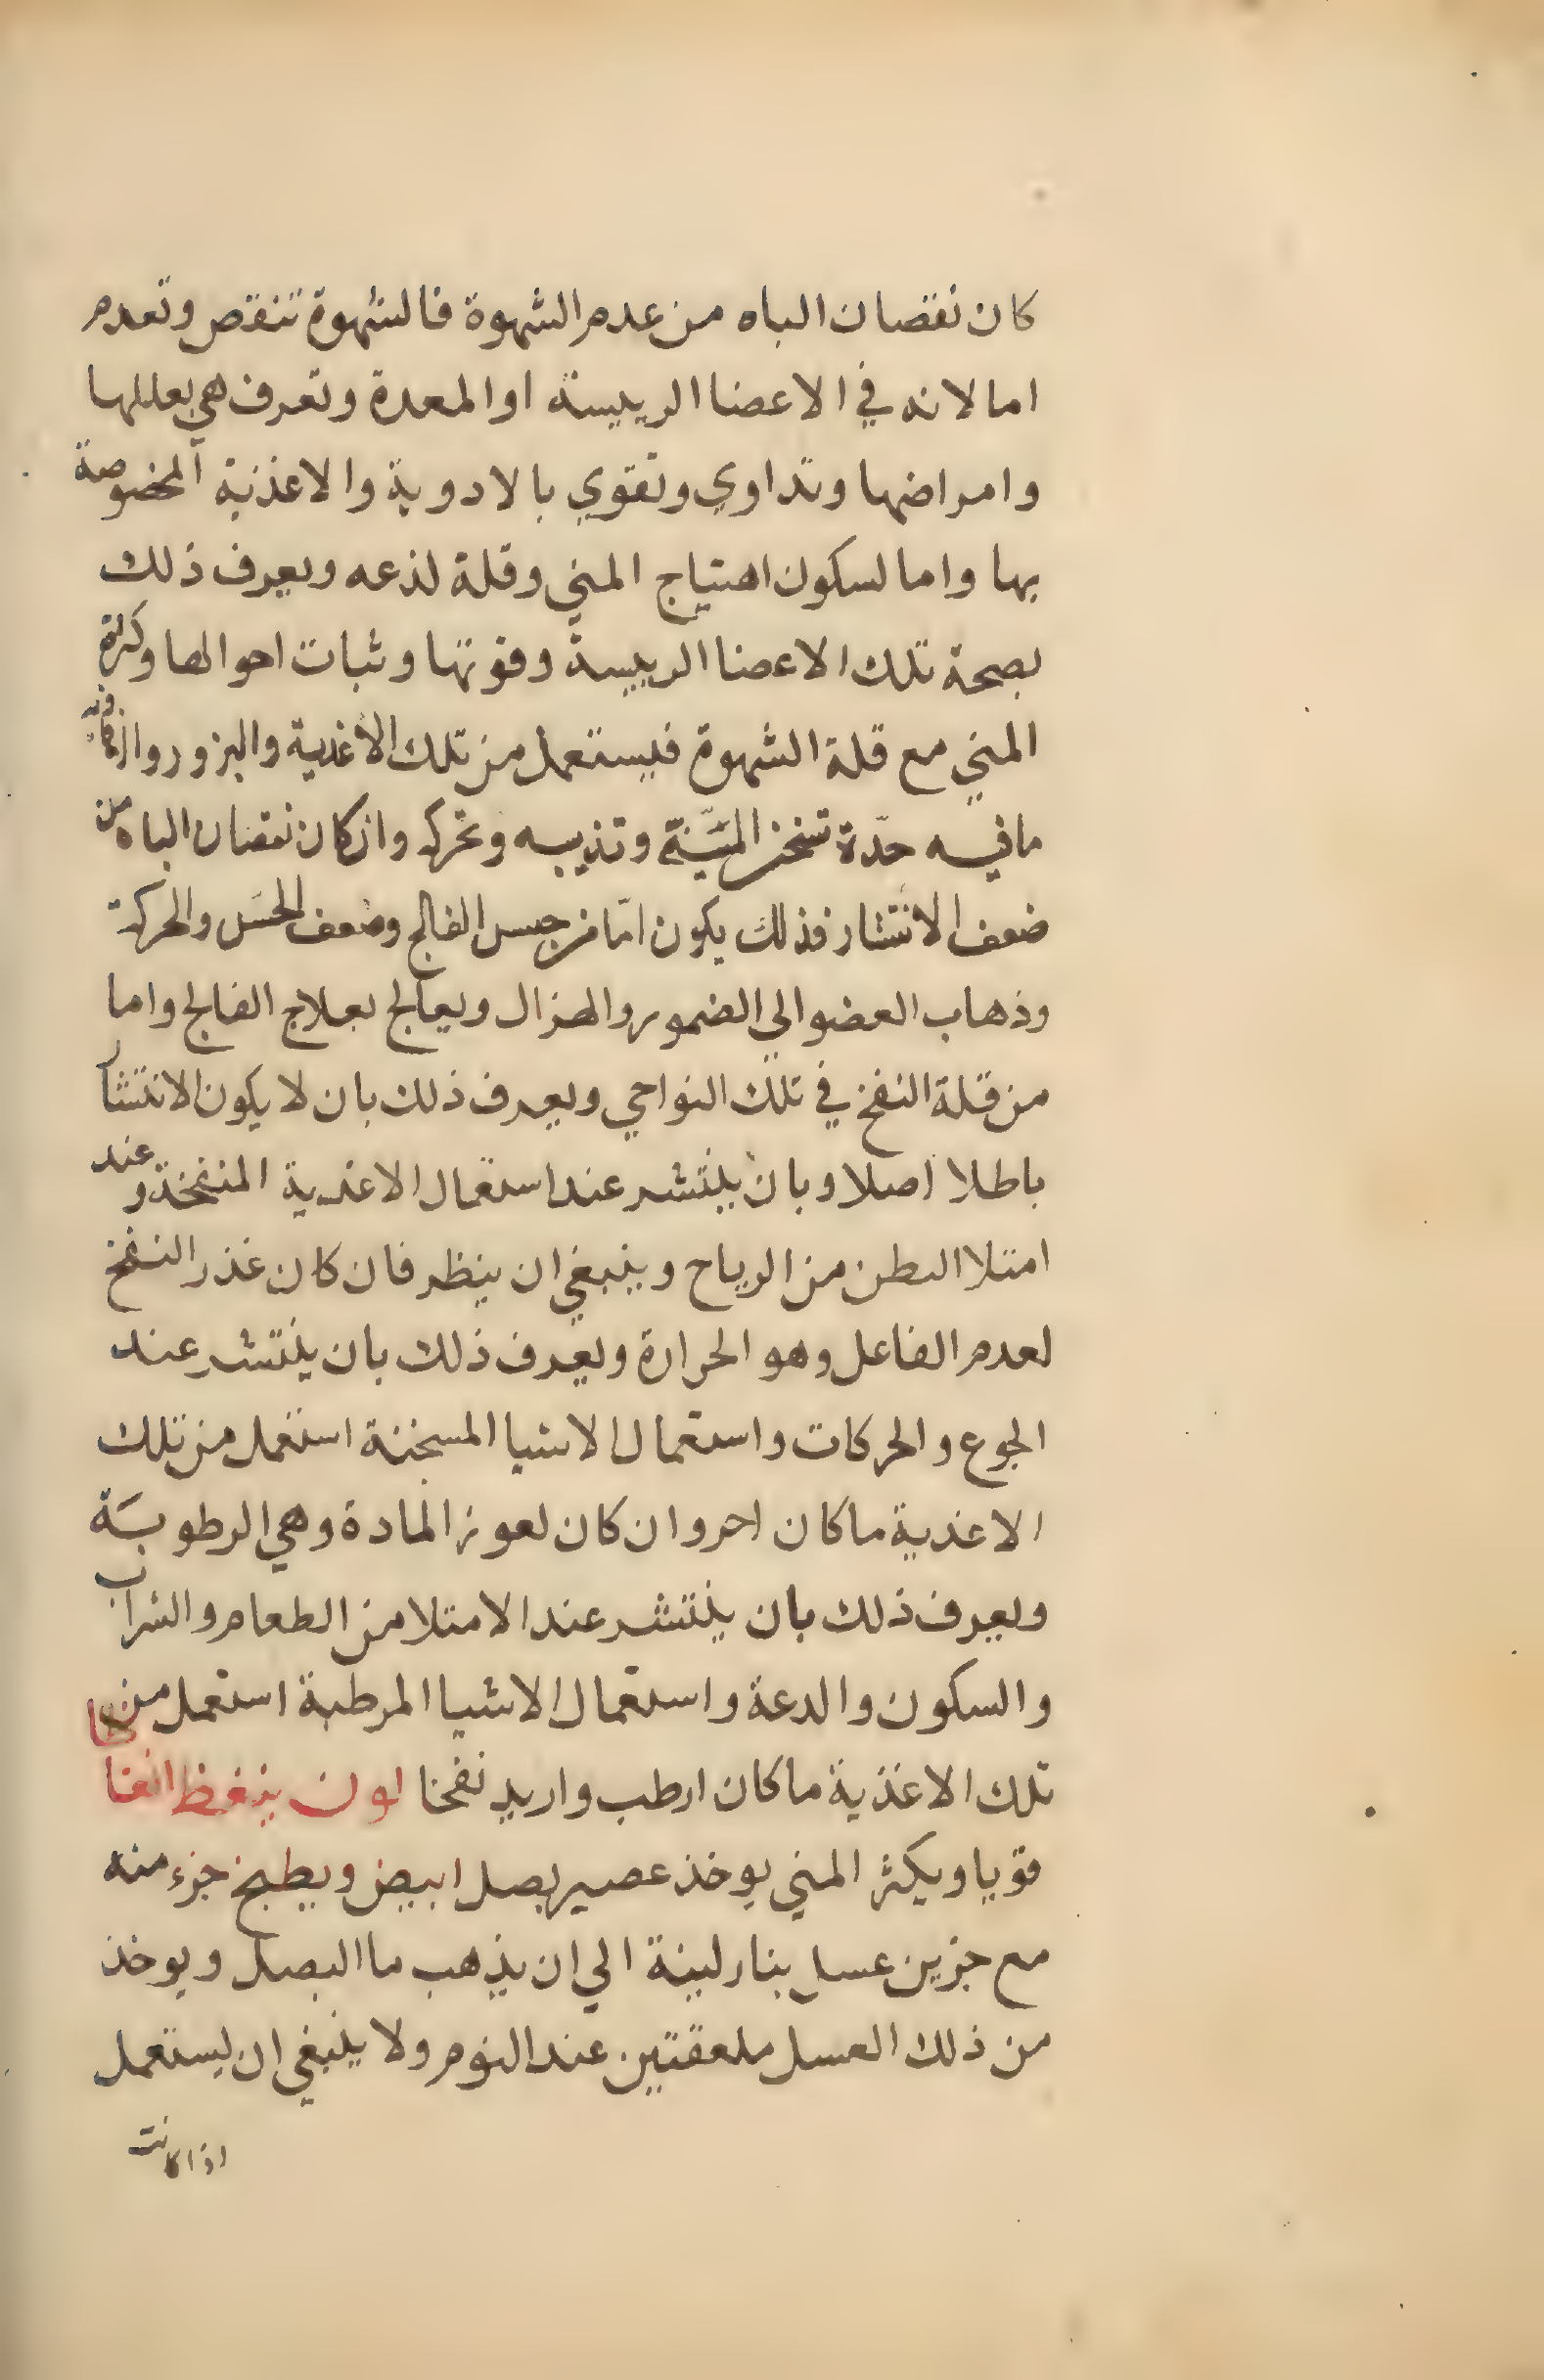 كان نقصان الباه من عدم الشهوة فالشهوة تنقص وتعدم
اما لانه في الاعضا الرييسة او المعدة وتعرف هي بعللها
وامراضها وتداوي وتقوي بالادوية والاغذية المخصوصة
بها واما لسكون اهتياج المني وقلة لذعه ويعرف ذلك
بصحة تلك الاعضا الرييسة وقوتها وثبات احوالها وكثرة
المني مع قلة الشهوة فيستعمل من تلك الاغدية والبزور
ما فيه حدّة تسخن وتذيبه وتحركه وان كان نقصان الباه من
ضعف الانتشار فذلك يكون امّا من جنس الفالج وضعف الحسَ والحركة
وذهاب العضو الي الضمور والهزال ويعالج بعلاج الفالج واما
من قلة النفخ في تلك النواحي ويعرف ذلك بان لا يكون الانتشار
باطلا اصلا وبان ينتشر عند استعمال الاغدية المنفخة وعند
امتلا البطن من الرياح وينبغي ان ينظر فان كان غذر النفخ
لعدم الفاعل وهو الحرارة ويعرف ذلك بان ينتشر عند
الجوع والحركات واستعمال الاشيا المسخنة استعمل من تلك
الاغدية ما كان احر وان كان لعوز المادة وهي الرطوبَة
ويعرف ذلك بان ينتشر عند الامتلا من الطعام والشراب
والسكون والدعة واستعمال الاشيا المرطبة استعمل من
تلك الاغذية ما كان ارطب واريد نفخا لون ينغظ انعاظا
قويا ويكثر المني يوخذ عصير بصل ابيض ويطبخ جزء منه
مع جزين عسل بنار لينة الي ان يذهب ما البصل ويوخذ
من ذلك العسل ملعقتين عند النوم ولا ينبغي ان يستعمل
اذا كانت